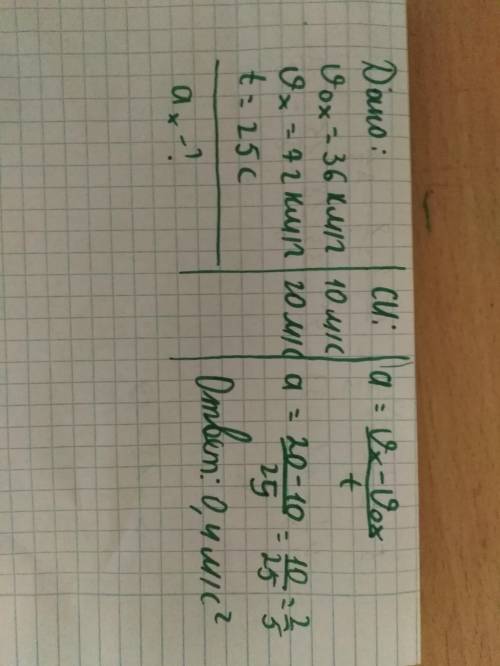 Дано:
υ₀ₓ = 36 км/ч
υₓ = 72 км/ч
t = 25 с
aₓ - ?
СИ:
10 м/с
20 м/с
a = (υₓ - υ₀ₓ)/t
a = (20 - 10)/25 = 10/25 = 2/5
Ответ: 0,4 м/с²